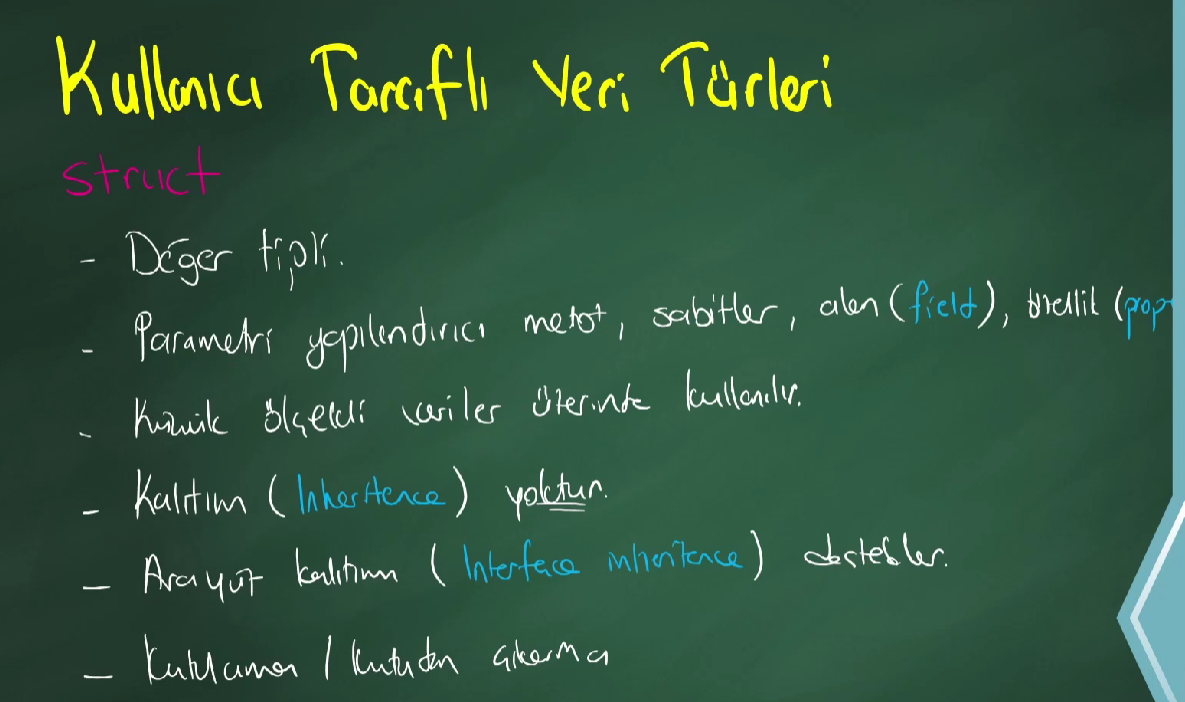 Kullanıcı Taraflı Veri Türleri
struct
- Değer tipli.
- Parametri yapılandırıcı metot, sabitler, alan (field), özellik (prop
- Küçük ölçekli veriler üzerinde kullanılır.
- Kalıtım (Inheritence) yoktur.
- Arayüz kalıtımı (Interface inheritence) destekler.
- Kutulama / kutudan çıkarma